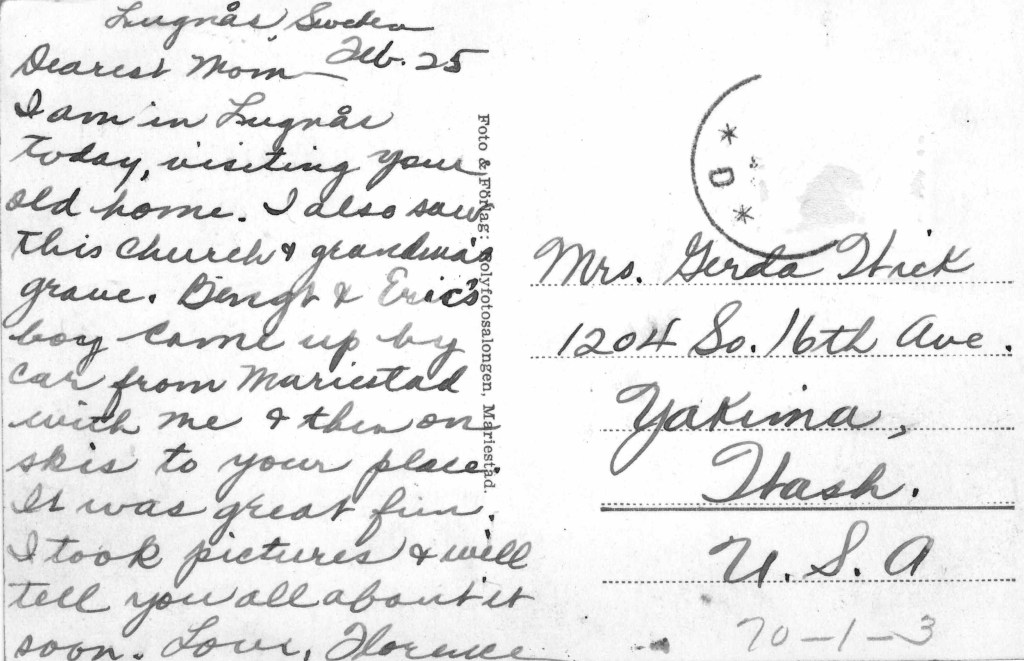 Lugnås, Sweden
Feb. 25
Dearest Mom—
I am in Lugnås
today, visiting your
old home. I also saw
this church & grandma's
grave. Bengt & Eric's
boy came up by
car from Mariestad
with me & then on
skis to your place.
It was great fun.
I took pictures & will
tell you all about it
soon. Love, Florence
Foto & Förlag: Polyfotosalongen, Mariestad
* D *
Mrs. Gerda Wick
1204 So. 16th Ave.
Yakima,
Wash.
U. S. A
70-1-3